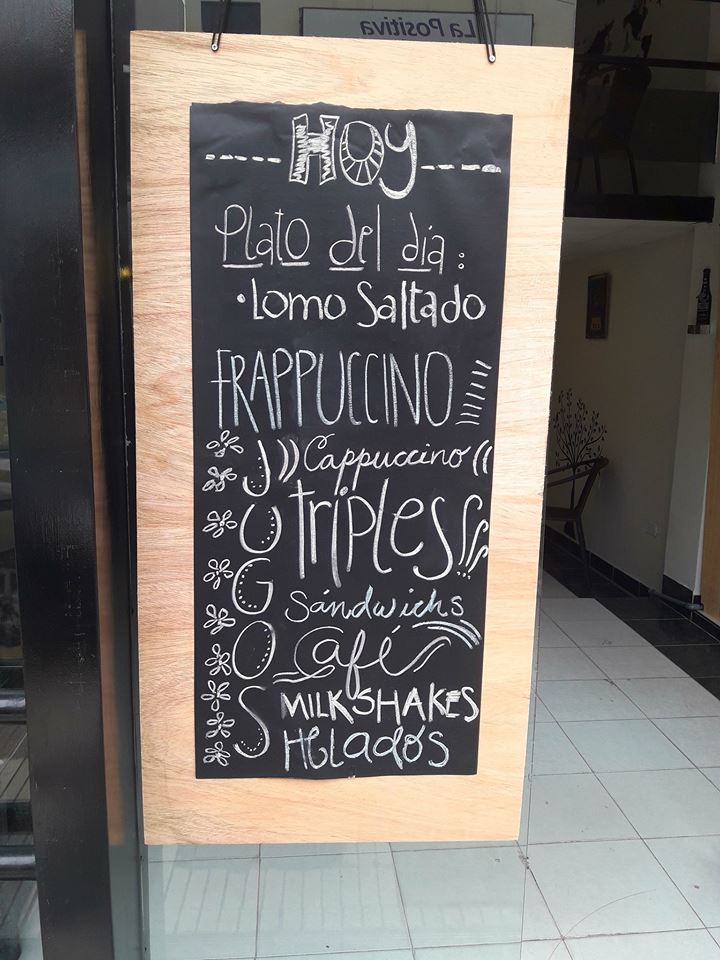 La Positiva
Hoy
Plato del día:
• Lomo Saltado
FRAPPUCCINO
JUGOS
Cappuccino
triples
Sándwichs
Café
MILKSHAKES
Helados